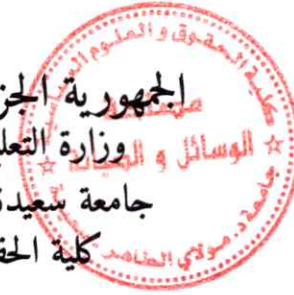 الجمهورية الجز
وزارة التعلي
جامعة سعيدة
كلية الحق
كلية الحقوق والعلوم
الوسائل و
جامعة د. مولاي الطاهر